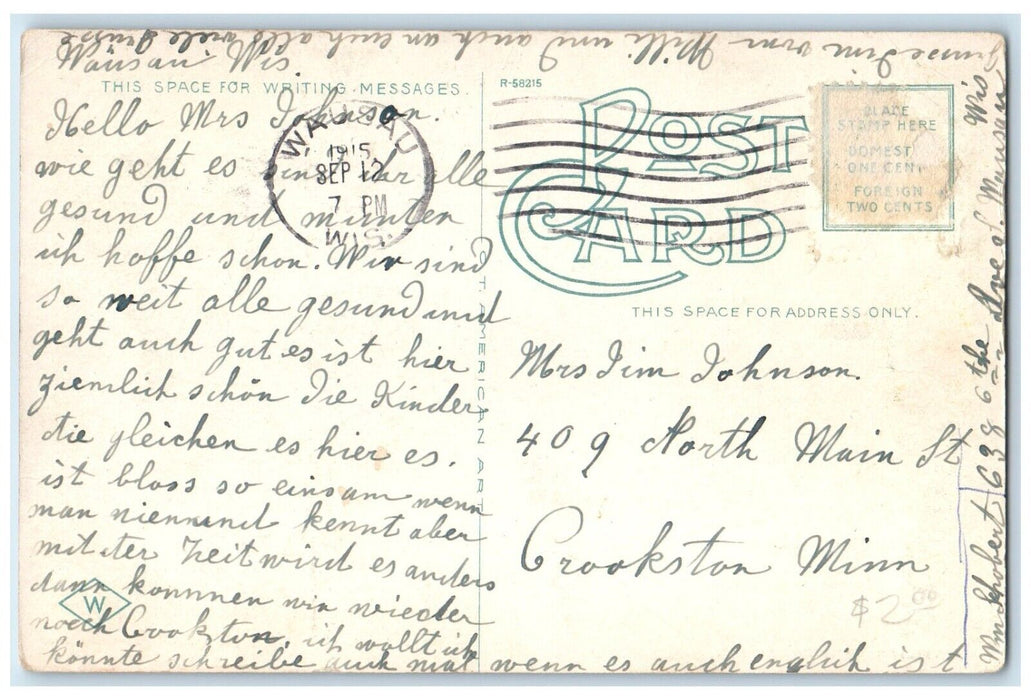 Wausau Wis
THIS SPACE FOR WRITING MESSAGES.
Hello Mrs Johnson.
wie geht es sind ihr alle
gesund und munter
ich hoffe schon. Wir sind
so weit alle gesund und
geht auch gut es ist hier
ziemlich schön Die Kinder
die gleichen es hier es.
ist bloss so einsam wenn
man niemand kennt aber
mit der Zeit wird es anders
dann kommen wir wieder
noch Crookston, ich wollt ich
könnte schreibe auch mal wenn es auch englich ist
W
WAUSAU
1915
SEP 12
7 PM
WIS.
POST AMERICAN ART
R-58215
POST
CARD
PLACE
STAMP HERE
DOMESTIC
ONE CENT
FOREIGN
TWO CENTS
THIS SPACE FOR ADDRESS ONLY.
Mrs Jim Johnson.
409 North Main St
Crookston Minn
$2.00
Wm Schobert 638 6the Ave S. Wausau Wis
Grusse Jim von Willi und auch an euch alle viele Grusse